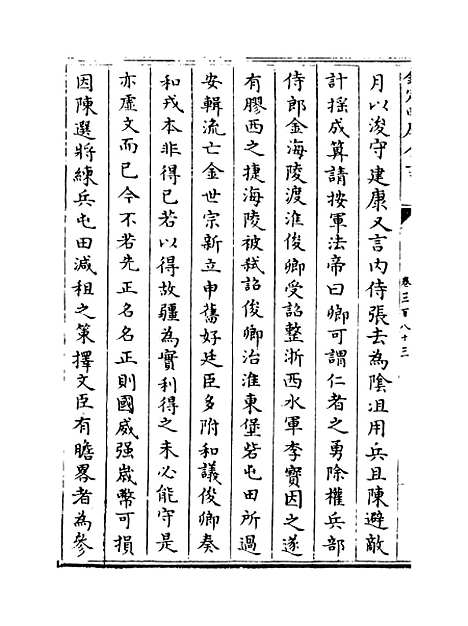 月以浚守建康又言内侍張去為陰沮用兵且陳避敵
計摇成算請按軍法帝曰卿可謂仁者之勇除權兵部
侍郎金海陵渡淮俊卿受詔整浙西水軍李寳因之遂
有膠西之捷海陵被弑詔俊卿治淮東堡砦屯田所過
安輯流亡金世宗新立申舊好廷臣多附和議俊卿奏
和戎本非得已若以得故疆為實利得之未必能守是
亦虚文而已今不若先正名名正則國威强嵗幣可損
因陳選將練兵屯田減租之策擇文臣有瞻畧者為參
卷三百八十三